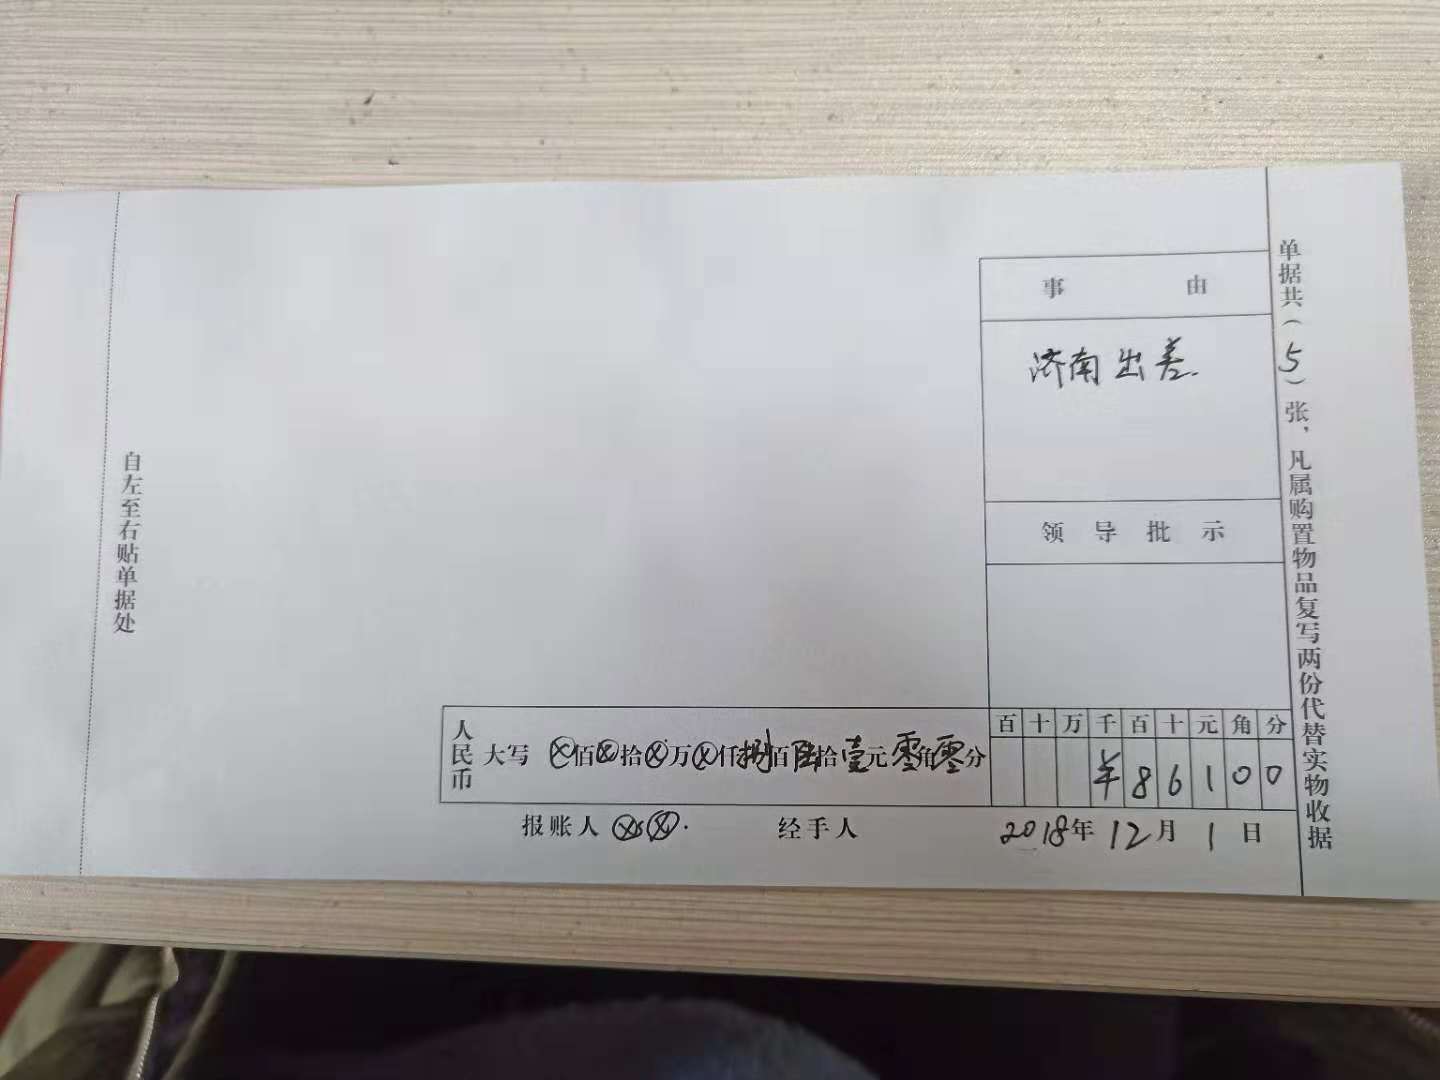 事由
济南出差.
领导批示
单据共(5)张，凡属购置物品复写两份代替实物收据
自左至右贴单据处
人民币 大写 ⊗佰⊗拾⊗万⊗仟捌百陆拾壹元零角零分
百十万千百十元角分
¥86100
报账人 ⊗⊗. 经手人 2018年12月1日